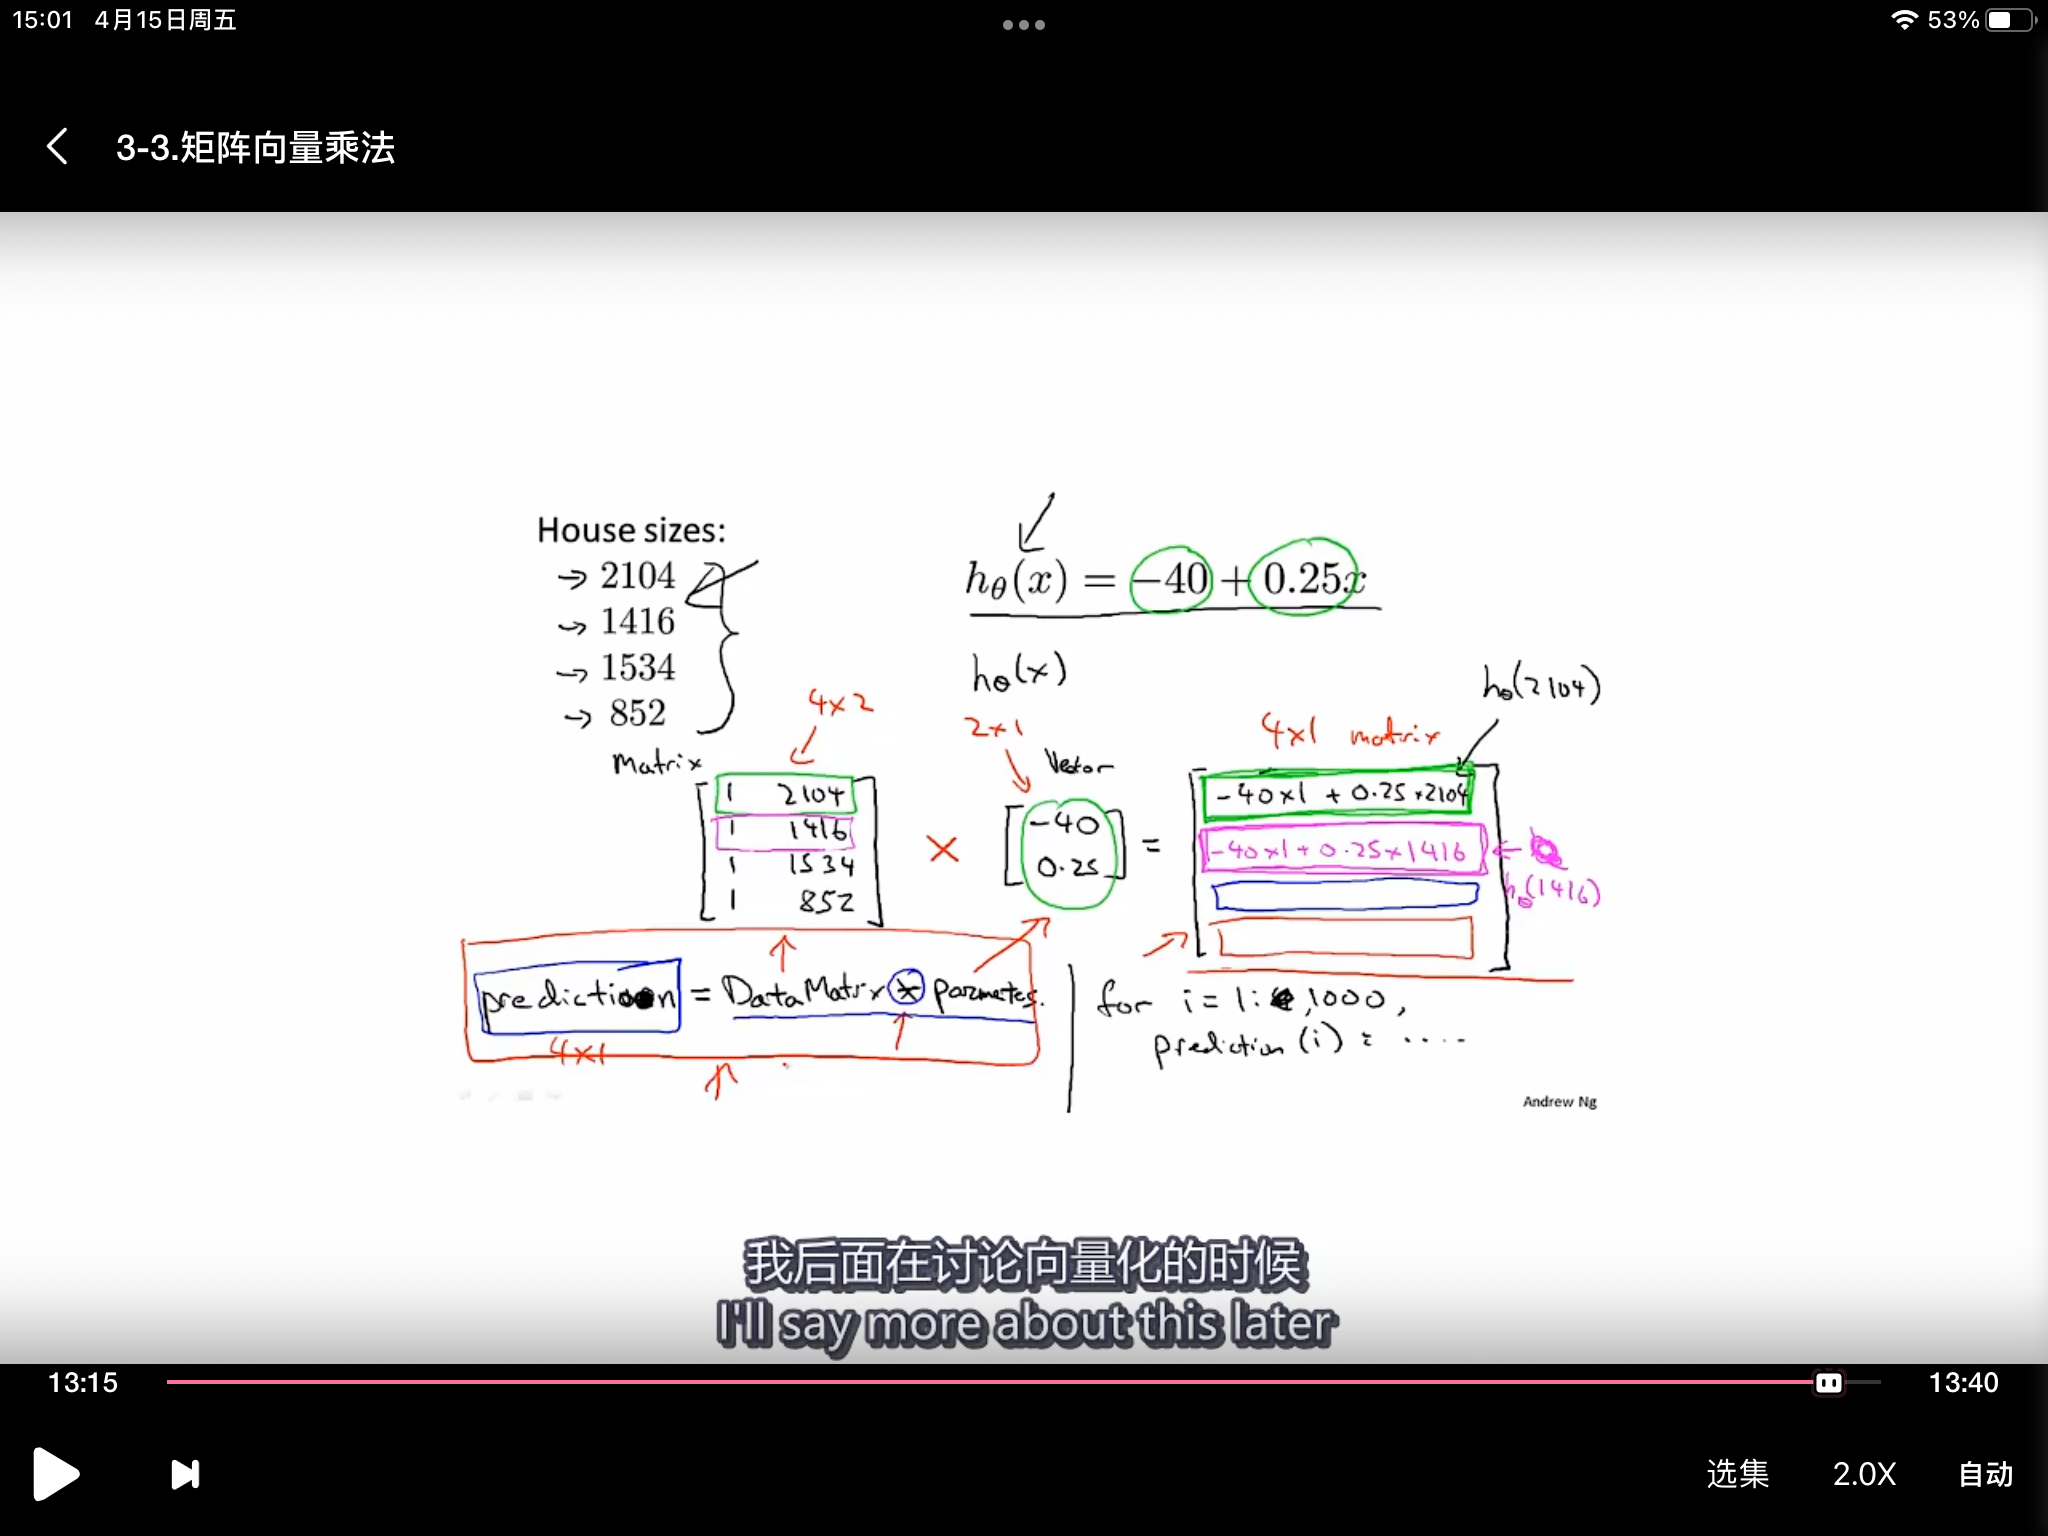 15:01 4月15日周五
53%
3-3.矩阵向量乘法
House sizes:
→ 2104
→ 1416
→ 1534
→ 852
hθ(x) = −40 + 0.25x
hθ(x)
hθ(2104)
4x2
2x1
4x1 matrix
Matrix
Vector
1 2104
1 1416
1 1534
1 852
×
-40
0.25
=
-40x1 + 0.25x2104
-40x1 + 0.25x1416
hθ(1416)
prediction = DataMatrix *
4x1
for i = 1: 1000,
prediction(i) = ....
Andrew Ng
我后面在讨论向量化的时候
I'll say more about this later
13:15
13:40
选集 2.0X 自动